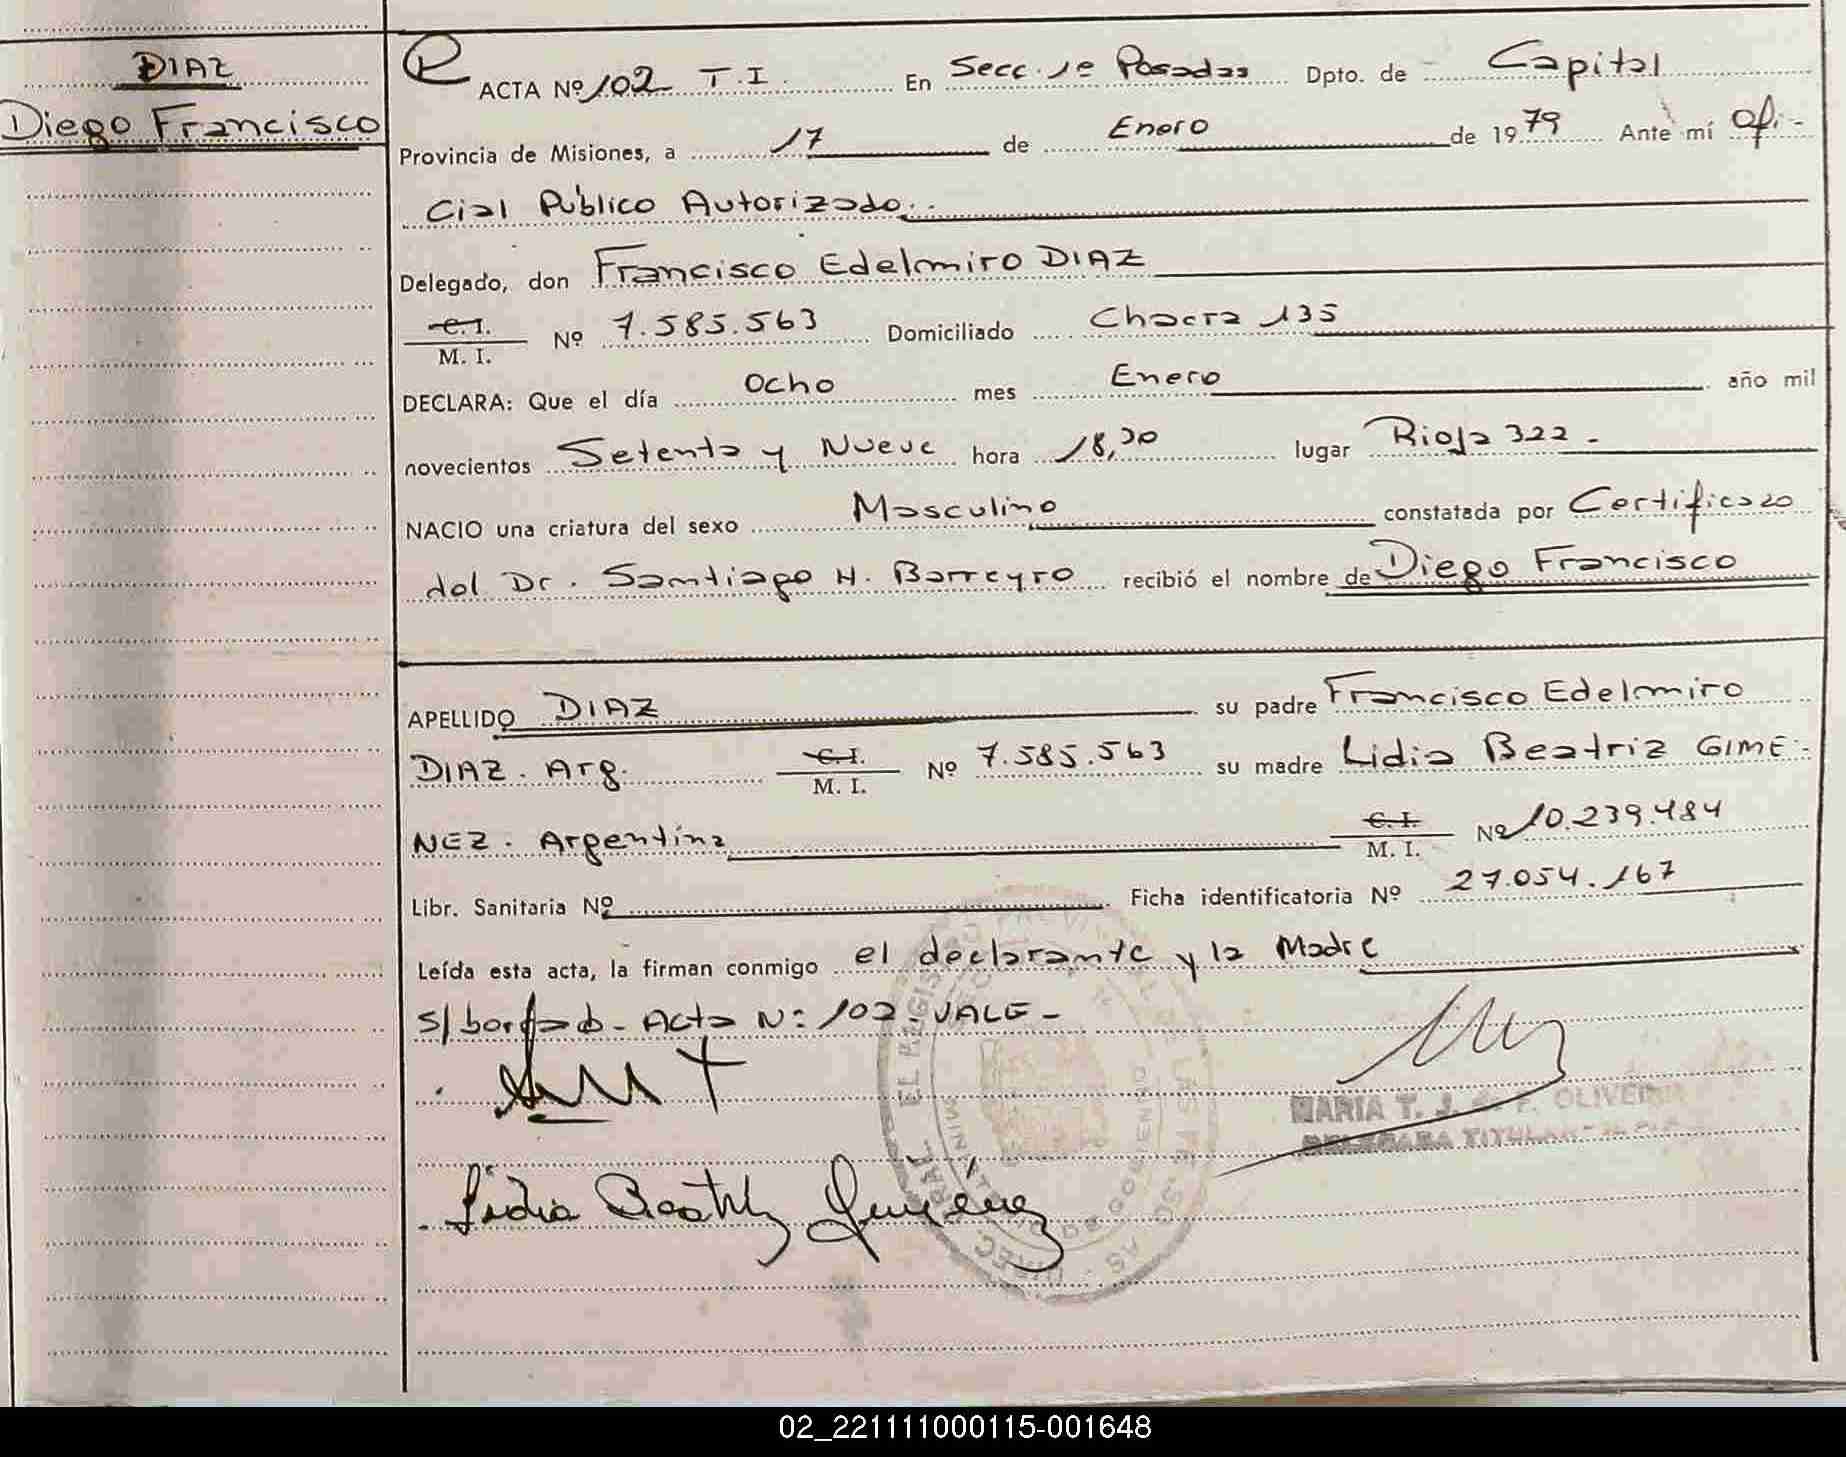 DIAZ
Diego Francisco
ACTA Nº 102 T.I. En Secc. 1º Posadas Dpto. de Capital
Provincia de Misiones, a 17 de Enero de 1979 Ante mí Ofi-
cial Público Autorizado.
Delegado, don Francisco Edelmiro DIAZ
C.I.
M. I. Nº 7.585.563 Domiciliado Chacra 135
DECLARA: Que el día Ocho mes Enero año mil
novecientos Setenta y Nueve hora 18,30 lugar Rioja 322.-
NACIO una criatura del sexo Masculino constatada por Certificado
del Dr. Santiago H. Barreyro recibió el nombre de Diego Francisco
APELLIDO DIAZ su padre Francisco Edelmiro
DIAZ. Arg. C.I.
M. I. Nº 7.585.563 su madre Lidia Beatriz GIME-
NEZ. Argentina C.I.
M. I. Nº 10.239.484
Libr. Sanitaria Nº Ficha identificatoria Nº 27.054.167
Leída esta acta, la firman conmigo el declarante y la Madre
S/ borrado - Acta Nº 102 - VALE -
MARIA T. J. de F. OLIVEIRA
DELEGADA TITULAR
Lidia Beatriz Giménez
02_221111000115-001648